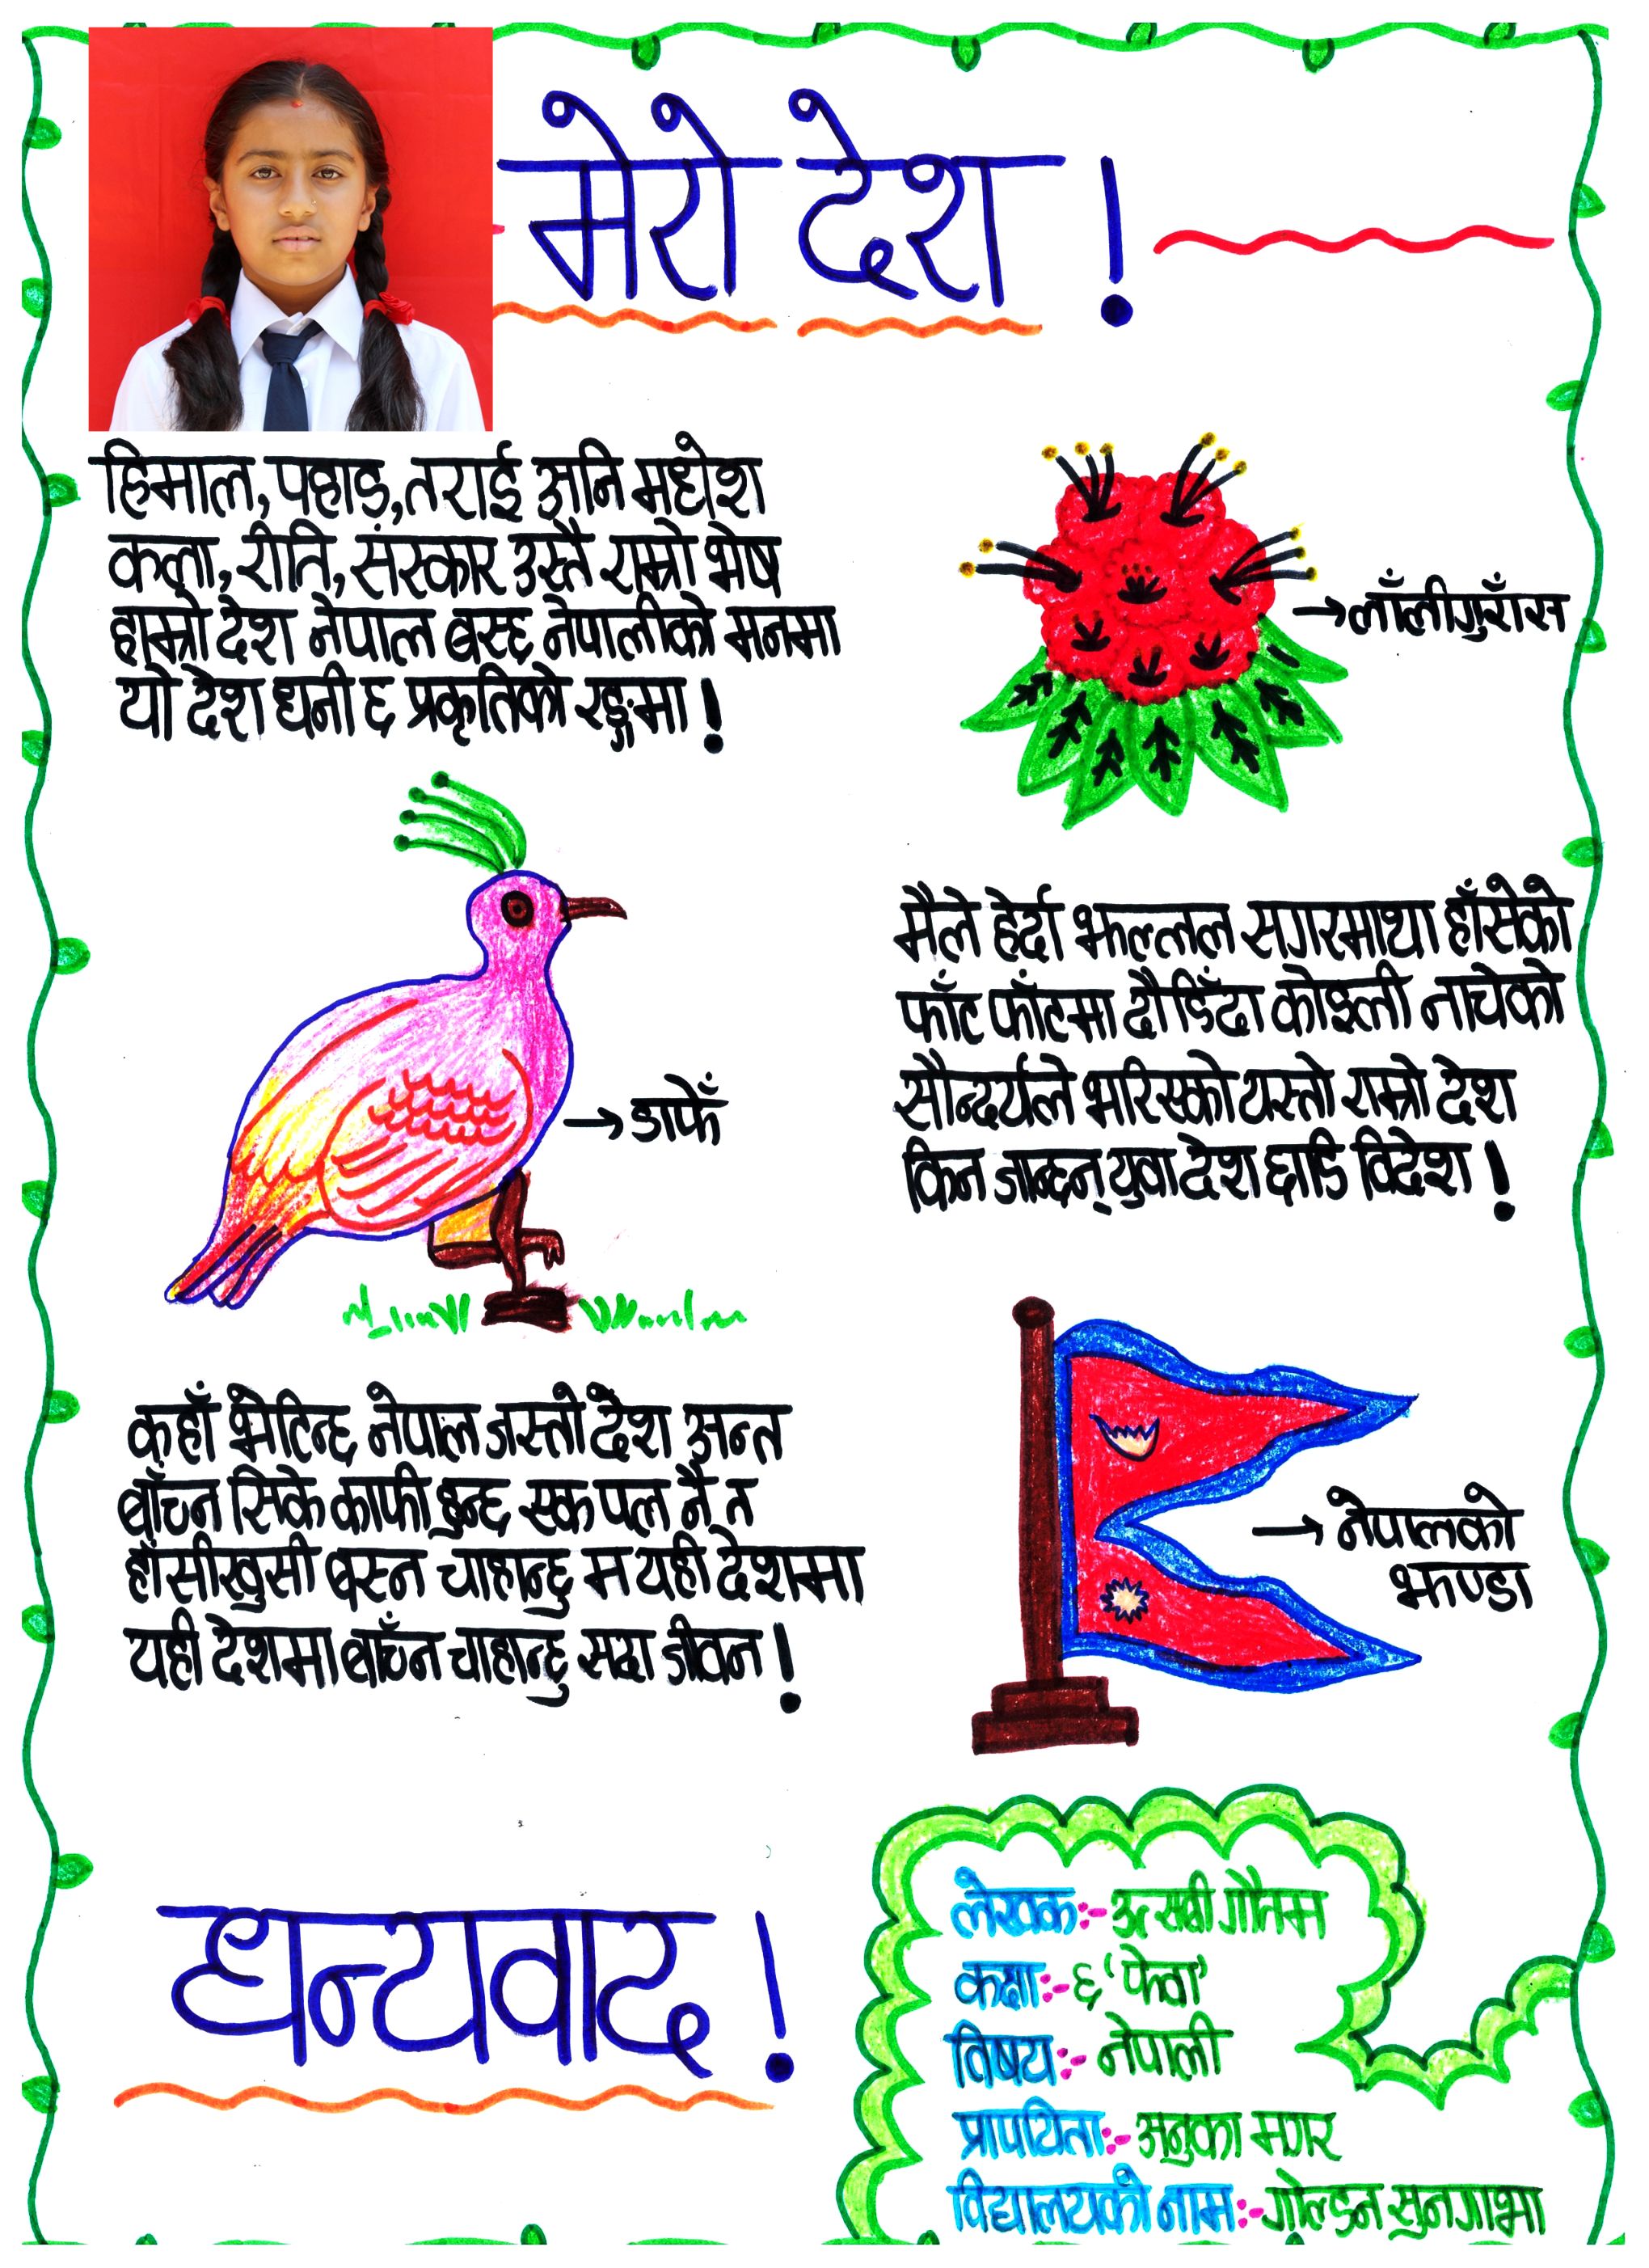 मेरो देश !
हिमाल, पहाड, तराई अनि मधेश
कला, रीति, संस्कार उस्तै राम्रो भेष
हाम्रो देश नेपाल बस्छ नेपालीको मनमा
यो देश धनी छ प्रकृतिको रङ्गमा !
→लाँलीगुराँस
→डाफेँ
मैले हेर्दा झल्लल सगरमाथा हाँसेको
फाँट फाँटमा दौडिँदा कोइली नाचेको
सौन्दर्यले भरिएको यस्तो राम्रो देश
किन जान्छन् युवा देश छाडि विदेश !
कहाँ भेटिन्छ नेपाल जस्तो देश अन्त
बाँच्न सिके काफी हुन्छ एक पल नै त
हाँसीखुसी बस्न चाहान्छु म यही देशमा
यही देशमा बाँच्न चाहान्छु सदा जीवन !
→ नेपालको
झण्डा
धन्यवाद !
लेखक:- गौतम
कक्षा:- ६ 'फेवा'
विषय:- नेपाली
अनुका मगर
विद्यालयको नाम:- गोल्डन सुनगाभा